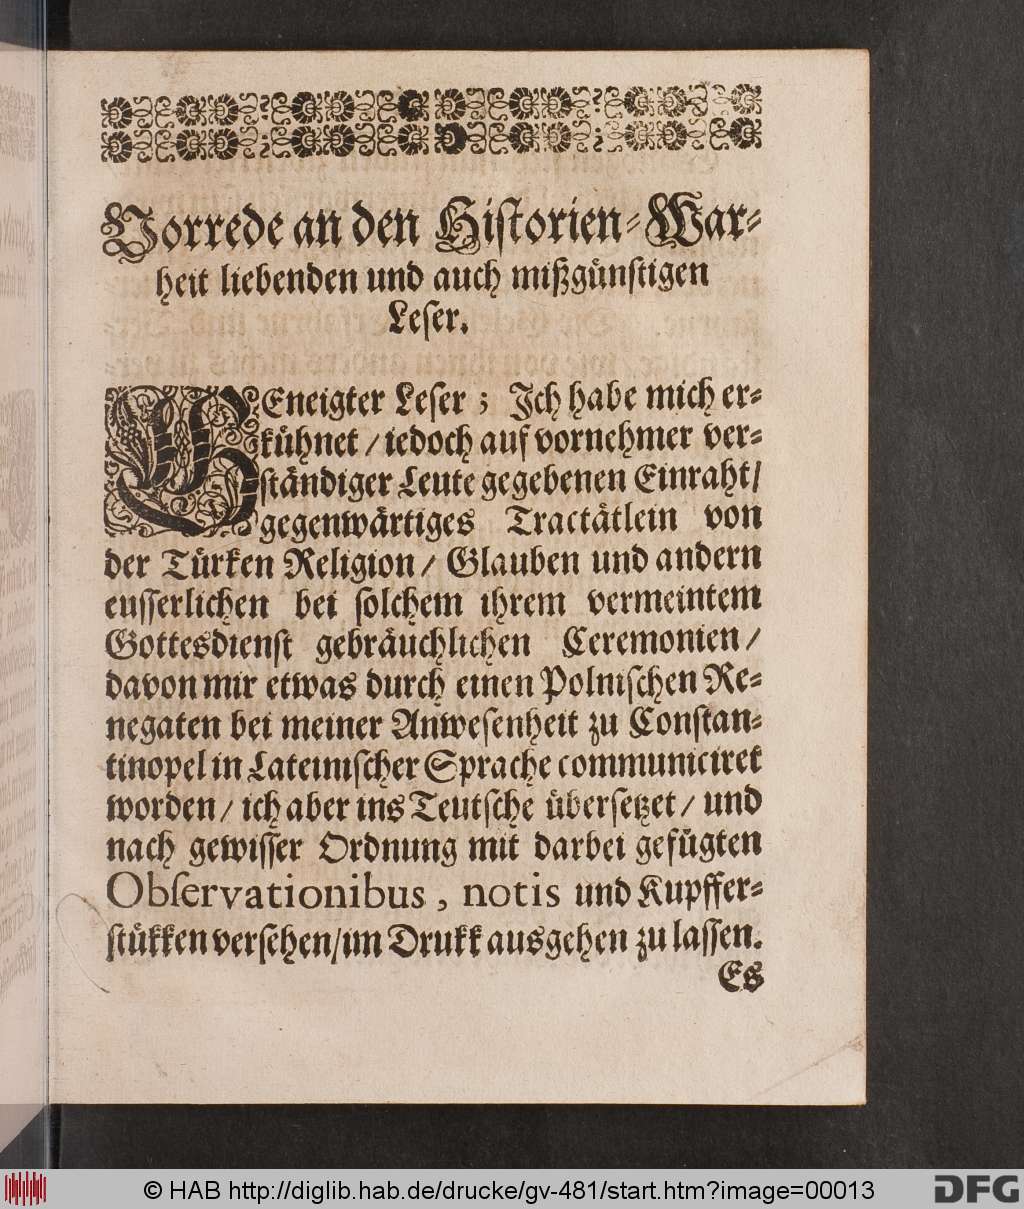 Vorrede an den Hiſtorien-War-
heit liebenden und auch mißgünſtigen
Leſer.
GEneigter Leſer; Ich habe mich er-
kühnet / iedoch auf vornehmer ver-
ſtändiger Leute gegebenen Einraht/
gegenwärtiges Tractätlein von
der Türken Religion / Glauben und andern
euſſerlichen bei ſolchem ihrem vermeintem
Gottesdienſt gebräuchlichen Ceremonien /
davon mir etwas durch einen Polniſchen Re-
negaten bei meiner Anweſenheit zu Conſtan-
tinopel in Lateiniſcher Sprache communiciret
worden / ich aber ins Teutſche überſetzet / und
nach gewiſſer Ordnung mit darbei gefügten
Obſervationibus, notis und Kupffer-
ſtükken verſehen/im Drukk ausgehen zu laſſen.
Es
© HAB http://diglib.hab.de/drucke/gv-481/start.htm?image=00013
DFG